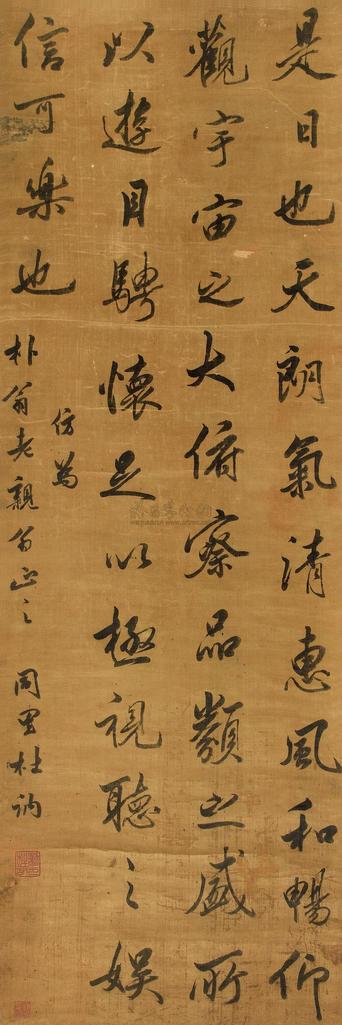 是日也天朗氣清惠風和暢仰
觀宇宙之大俯察品類之盛所
以遊目騁懷足以極視聽之娛
信可樂也
仿爲
朴翁老親翁正之
同里杜訥